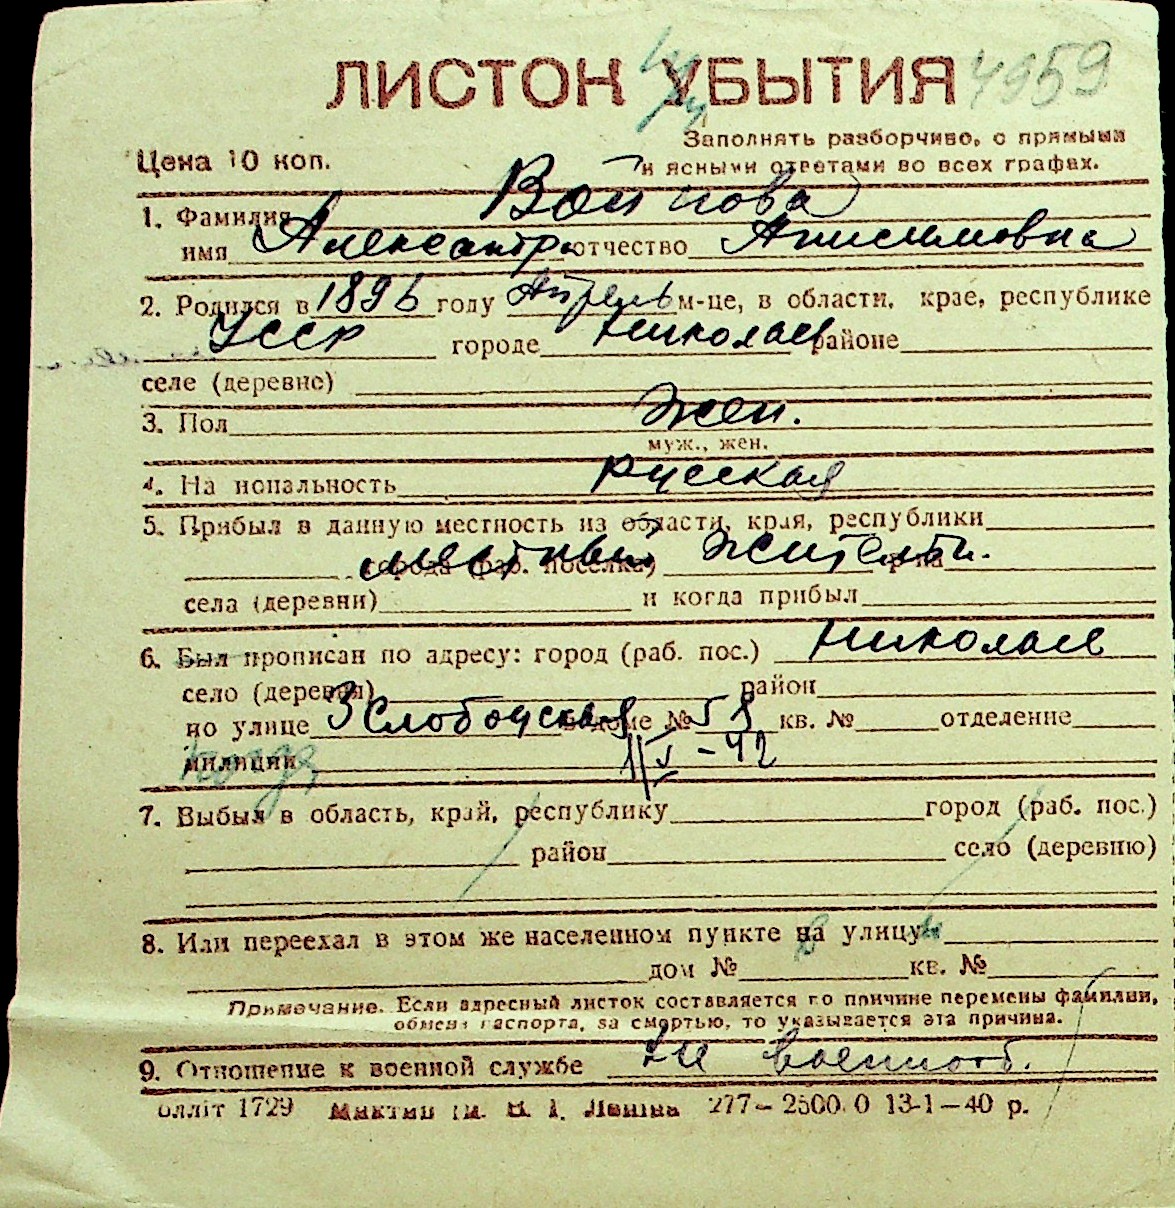 ЛИСТОК УБЫТИЯ 4959
Заполнять разборчиво, с прямыми
и ясными ответами во всех графах.
Цена 10 коп.
1. Фамилия Войнова
имя Александра отчество Анисимовна
2. Родился в 1896 году Апрель м-це, в области, крае, республике
УССР городе Николаев районе
селе (деревне)
3. Пол Жен.
муж., жен.
4. На иональность русская
5. Прибыл в данную местность из области, края, республики
местный города (раб. поселка) житель р-на
села (деревни) и когда прибыл
6. Был прописан по адресу: город (раб. пос.) Николаев
село (деревня) район
по улице 3 Слободская в доме № 58 кв. № отделение
милиции
7. Выбыл в область, край, республику город (раб. пос.)
район село (деревню)
8. Или переехал в этом же населенном пункте на улицу
дом № кв. №
Примечание. Если адресный листок составляется по причине перемены фамилии,
обмена паспорта, за смертью, то указывается эта причина.
9. Отношение к военной службе Не военнооб.
олліт 1729 277–2500.0 13-1–40 р.